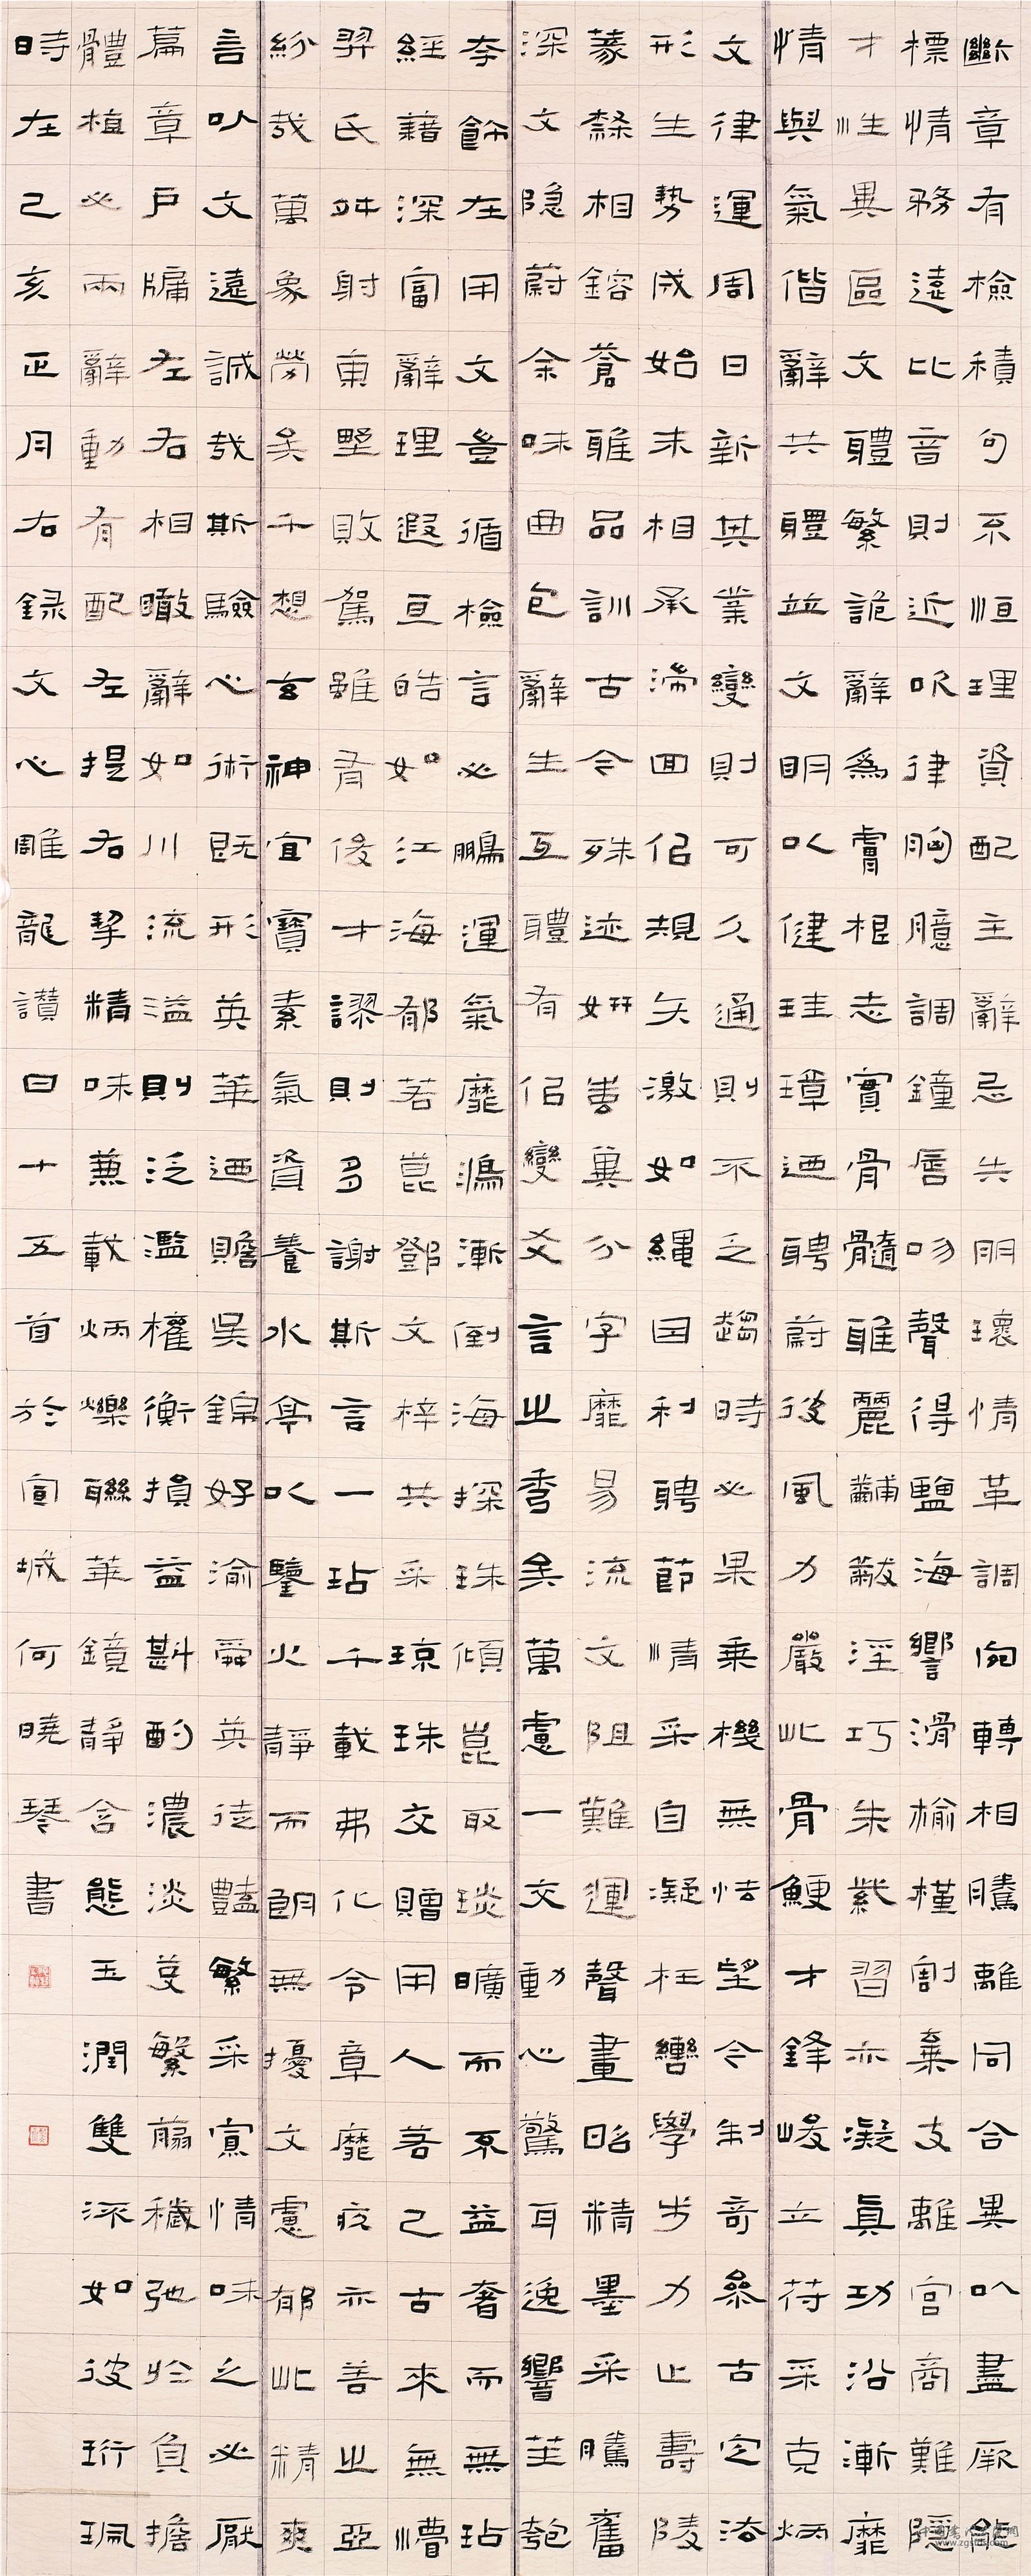 斷章有檢積句不恒理資配主辭忌失朋環情革調宛轉相騰離同合異以盡厥能
標情務遠比音則近吹律胸臆調鐘唇吻聲得鹽海響滑榆槿割棄支離宮商難隱
才性異區文體繁詭辭為膚根志實骨髓雅麗黼黻淫巧朱紫習亦凝真功沿漸靡
情與氣偕辭共體並文明以健珪璋迺聘蔚彼風力嚴此骨鯁才鋒峻立符采克炳
文律運周日新其業變則可久通則不乏趨時必果乘機無怯望今制奇參古定法
形生勢成始末相承湍回似規矢激如繩因利聘節情采自凝枉轡學步力止壽陵
篆隸相鎔蒼雅品訓古今殊迹妍媸異分字靡易流文阻難運聲畫昭精墨采騰奮
深文隱蔚余味曲包辭生互體有似變爻言之秀矣萬慮一交動心驚耳逸響笙匏
夸飾在用文豈循檢言必鵬運氣靡鴻漸倒海探珠傾崑取琰曠而不益奢而無玷
經籍深富辭理遐亘皓如江海郁若崑鄧文梓共采琼珠交贈用人若己古來無懵
羿氏舛射東野敗駕雖有俊才謬則多謝斯言一玷千載弗化令章靡疚亦善之亞
紛哉萬象勞矣千想玄神宜寶素氣資養水停以鑒火靜而朗無擾文慮郁此精爽
言以文遠誠哉斯驗心術既形英華迺贍吳錦好渝舜英徒豔繁采寡情味之必厭
篇章戶牖左右相瞰辭如川流溢則泛濫權衡損益斟酌濃淡芟繁剪穢弛於負擔
體植必兩辭動有配左提右挈精味兼載炳爍聯華鏡靜含態玉潤雙流如彼珩珮
時在己亥正月右錄文心雕龍讚曰十五首於宣城何曉琴書